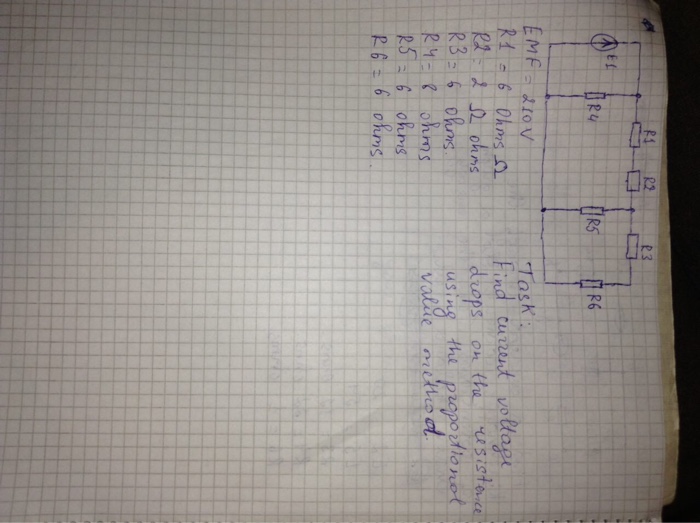 E1
R1
R2
R3
R4
R5
R6
EMF = 210V
R1 = 6 Ohms Ω
R2 = 2 Ω ohms
R3 = 6 Ohms.
R4 = 8 ohms
R5 = 6 ohms
R6 = 6 ohms.
Task:
Find current voltage
drops on the resistence
using the proportional
value method.